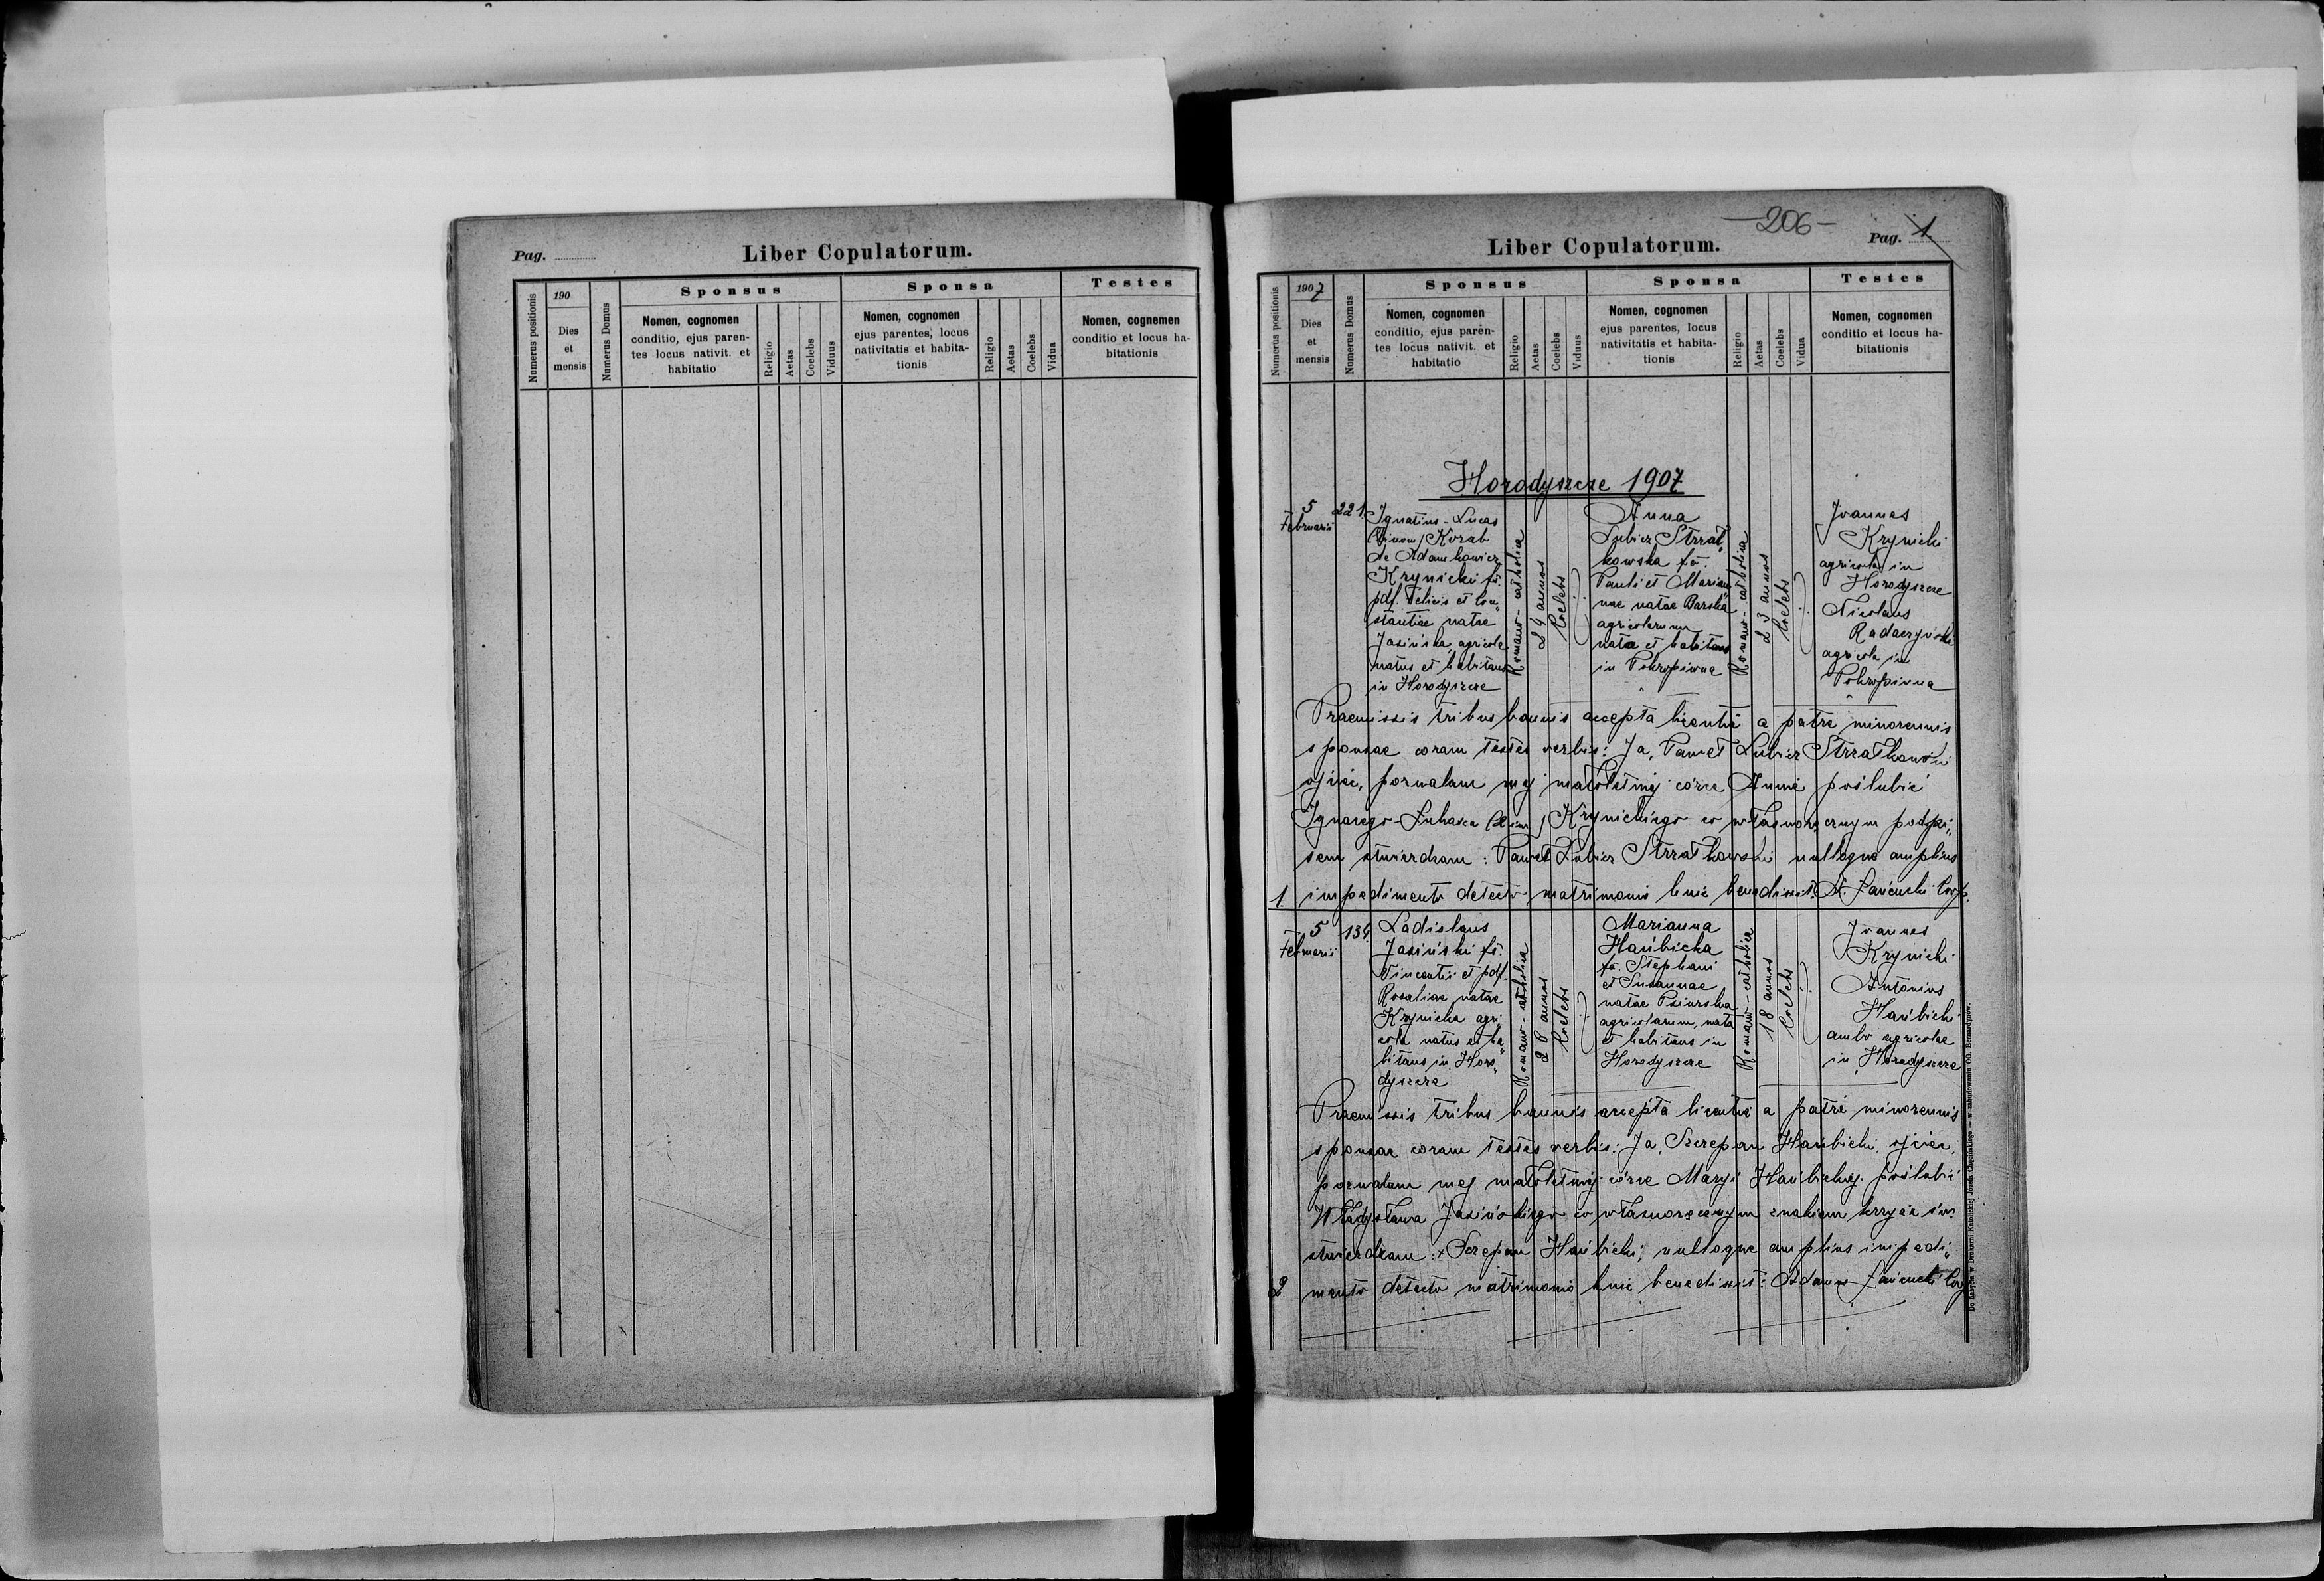 Pag.
Liber Copulatorum.
Numerus positionis
190
Dies
et
mensis
Numerus Domus
Sponsus
Nomen, cognomen
conditio, ejus paren-
tes locus nativit. et
habitatio
Religio
Aetas
Coelebs
Viduus
Sponsa
Nomen, cognomen
ejus parentes, locus
nativitatis et habita-
tionis
Religio
Aetas
Coelebs
Vidua
Testes
Nomen, cognemen
conditio et locus ha-
bitationis
-206-
Liber Copulatorum.
Pag. 1
Numerus positionis
1907
Dies
et
mensis
Numerus Domus
Sponsus
Nomen, cognomen
conditio, ejus paren-
tes locus nativit. et
habitatio
Religio
Aetas
Coelebs
Viduus
Sponsa
Nomen, cognomen
ejus parentes, locus
nativitatis et habita-
tionis
Religio
Aetas
Coelebs
Vidua
Testes
Nomen, cognomen
conditio et locus ha-
bitationis
Horodyszcze 1907
5
Februarii
221.
Ignatius-Lucas
(binom) Korab
de Adamkowicz
Krynicki fs.
pdf. Felicis et Con„
stantiae natae
Jasińska, agricola
natus et habitans
in Horodyszcze
Romano-catholica
24 annos
Coelebs
Anna
Lubicz Strzał„
kowska fa.
Pauli et Marian„
nae natae Barska
agricolarum
nata et habitans
in Pokropiwna
Romano-catholica
23 annos
Coelebs
Joannes
Krynicki
agricola in
Horodyszcze
Nicolaus
Radaczyński
agricola in
Pokropiwna
Praemissis tribus bannis accepta licentia a patre minorennis
sponsae coram testes verbis: Ja, Paweł Lubicz Strzałkowski
ojciec, pozwalam mej małoletniej córce Annie poślubić
Ignacego-Łukasza (binom) Krynickiego co własnoręcznym podpi„
sem stwierdzam: Paweł Lubicz Strzałkowski nulloque amplius
1. impedimento detecto matrimonio huic benedixit: A. Łańcucki Coop.
5
Februarii
134.
Ladislaus
Jasiński fs.
Vincentii et pdf.
Rosaliae natae
Krynicka agri„
cola natus et ha„
bitans in Horo„
dyszcze
Romano-catholica
26 annos
Coelebs
Marianna
Hańbicka
fa. Stephani
et Susannae
natae Psiurska
agricolarum, nata
et habitans in
Horodyszcze
Romano-catholica
18 annos
Coelebs
Joannes
Krynicki
Antonius
Hańbicki
ambo agricolae
in Horodyszcze
Praemissis tribus bannis accepta licentia a patre minorennis
sponsae coram testes verbis: Ja, Szczepan Hańbicki, ojciec,
pozwalam mej małoletniej córce Maryi Hańbickiej poślubić
Władysława Jasińskiego co własnoręcznym znakiem krzyża św.
stwierdzam: + Szczepan Hańbicki, nulloque amplius impedi„
2. mento detecto matrimonio huic benedixit: Adamus Łańcucki Coop.
Do nabycia w Drukarni Katolickiej Józefa Chęcińskiego — w zabudowaniu OO. Bernardynów.